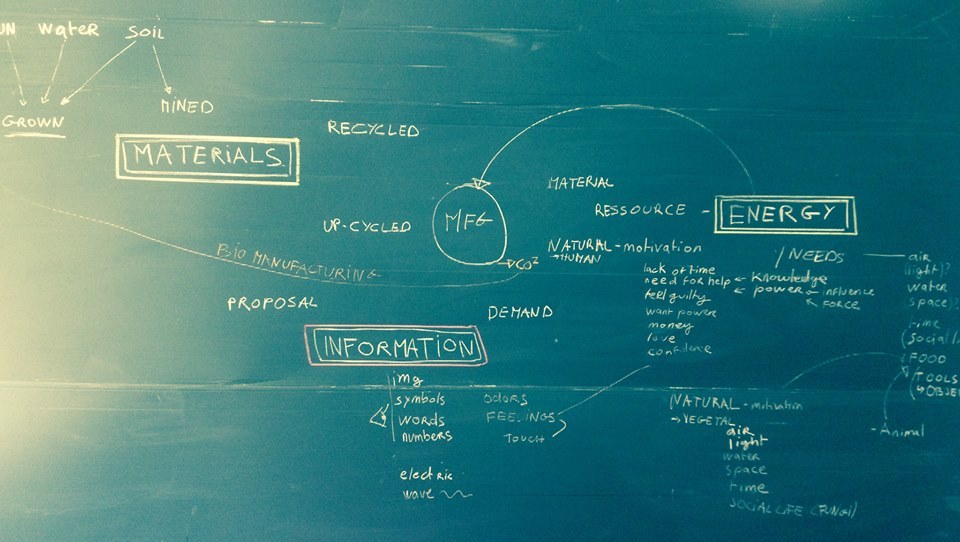 water
SOIL
GROWN
MINED
MATERIALS
RECYCLED
UP-CYCLED
MFG
CO²
BIO MANUFACTURING
MATERIAL
RESSOURCE - ENERGY
NATURAL - motivation
→ HUMAN
/ NEEDS
lack of time
need for help ← Knowledge
feel guilty ← power ← influence
FORCE
want power
money
love
confidence
air
(light)?
water
space)?
time
(Social
FOOD
TOOLS
PROPOSAL
DEMAND
INFORMATION
img
symbols
words
numbers
electric
wave
ODORS
FEELINGS
TOUCH
NATURAL - motivation
→ VEGETAL
air
light
water
space
time
SOCIAL LIFE (FUNGI)
- Animal